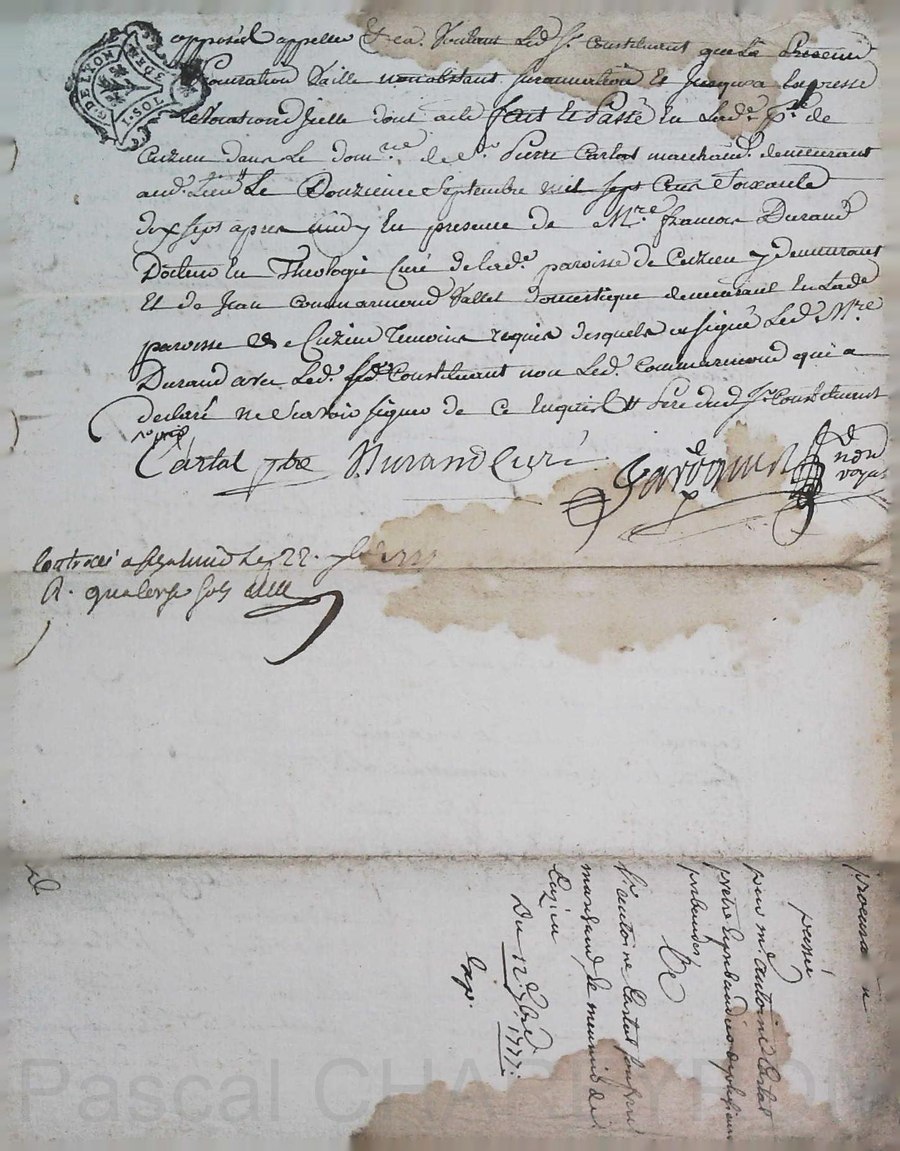 G. DE LYON
3 DEN
1. SOL
opposer appeller &ca. Voulant Led. Sr. Constituant que La
procuration vaille nonobstant surannation Et jusqu'a Expresse
Revocation Jcelle dont acte fait Et Passé En Lade. pse. de
Cuzieu dans Le dom.ne de Sr. Pierre Cartal marchand demeurant
aud. Lieu Le Douzieme Septembre mil sept Cens Soixante
dix sept apres midy En presence de Mre. francois Durand
Docteur En Theologie Curé de lade. paroisse de Cuzieu y demeurant
Et de Jean Commarmond Vallet domestique demeurant En Lade
paroisse de Cuzieu Temoins requis desquels a signé Led. Mre
Durand avec Led. Sr. Constituant non Led. Commarmond qui a
declaré ne Scavoir signer de ce Enquis Et Pere dud Sr. Constituant
Cartal pbe Durand Curé
Controllé a Le 22. 7bre
R. quatorze sols
procura n
passé
par mre antoine Cartal
pretre
prebendes
Sr antoine Cartal son frere
marchand demeurant de
Cuzieu
Du 12 7bre 1777:
Exp.
Pascal CHARLYRON